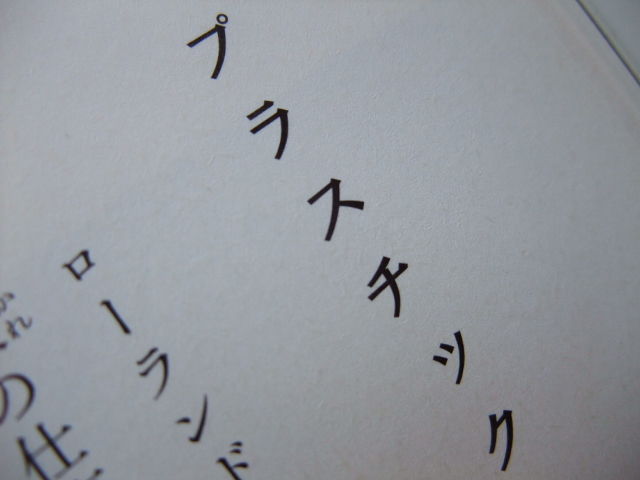 プラスチック
ローランド
の仕